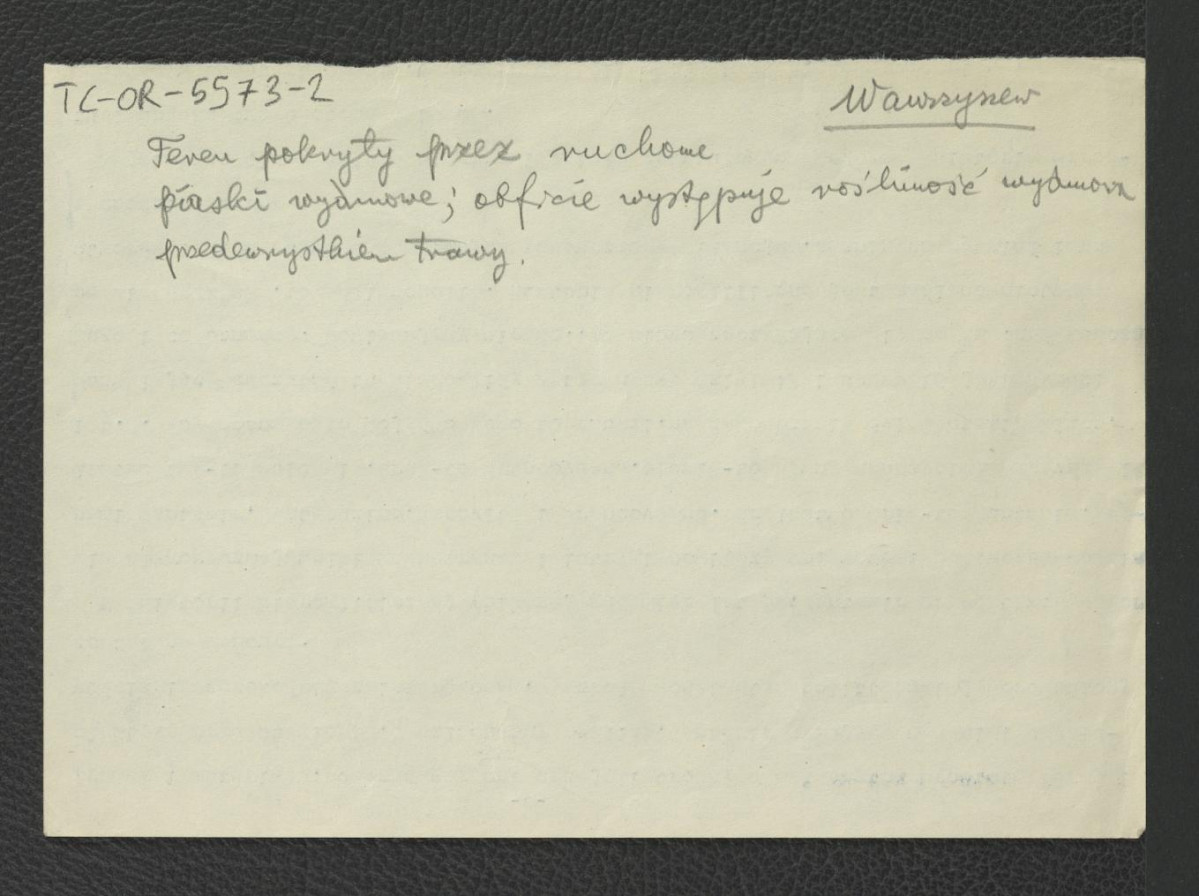 TC-OR-5573-2
Wawrzyszew
Teren pokryty przez ruchome
piaski wydmowe; obficie występuje roślinność wydmowa
przedewszystkiem trawy.